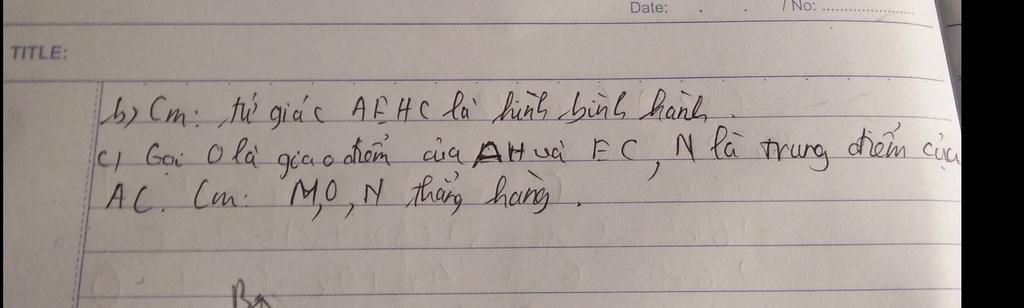 Date: . . / No: ....................
TITLE:
b) Cm: tứ giác AEHC là hình bình hành.
c) Gọi O là giao điểm của AH và EC, N là trung điểm của
AC. Cm: M,O,N thẳng hàng.
B